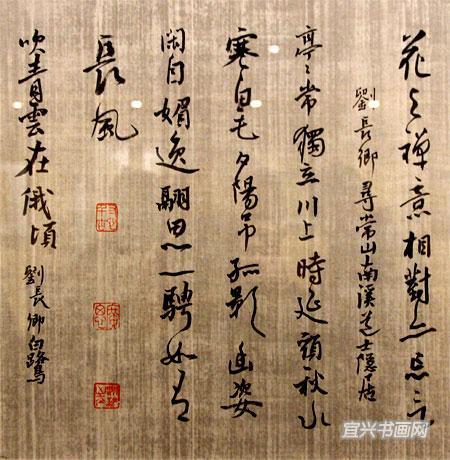 花与禪意相對亦忘言
劉長卿尋常山南溪道士隱居
亭〻常獨立川上時延頸秋水
寒白毛夕陽吊孤影幽姿
閑自媚逸翮思一騁如有
長風
吹青雲在俄頃
劉長卿白鷺
宜兴书画网